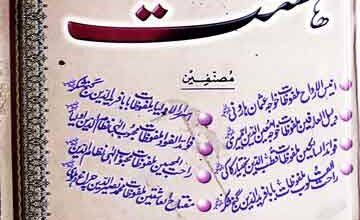 ہشت
مصنفین
انیس الارواح ملفوظات خواجہ عثمان ہارونی
دلیل العارفین ملفوظات خواجہ معین الدین اجمیری
فوائد السالکین ملفوظات قطب الدین بختیار کاکی
راحت القلوب ملفوظات بابا فرید الدین گنج شکر
اسرار الاولیاء ملفوظات بابا فرید الدین گنج شکر
فوائد الفواد ملفوظات محبوب الٰہی نظام الدین اولیا
راحت المحبین ملفوظات محبوب الٰہی نظام الدین
مفتاح العاشقین ملفوظات نصیر الدین چراغ دہلی